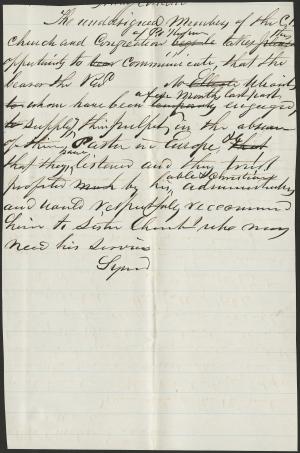 The undersigned Members of the
Church and Congregation takes
oppertunity to Communicate, that the
bearer the Revd
a few Months last past
to whom have been engaged
to supply their pulpit, in the absence
of their Pastor in Europe,
that they listened and they trust
profited much by his able & Christian administrations
and would respectfully reccommend
him to Sister Churchs who may
need his services
Signed